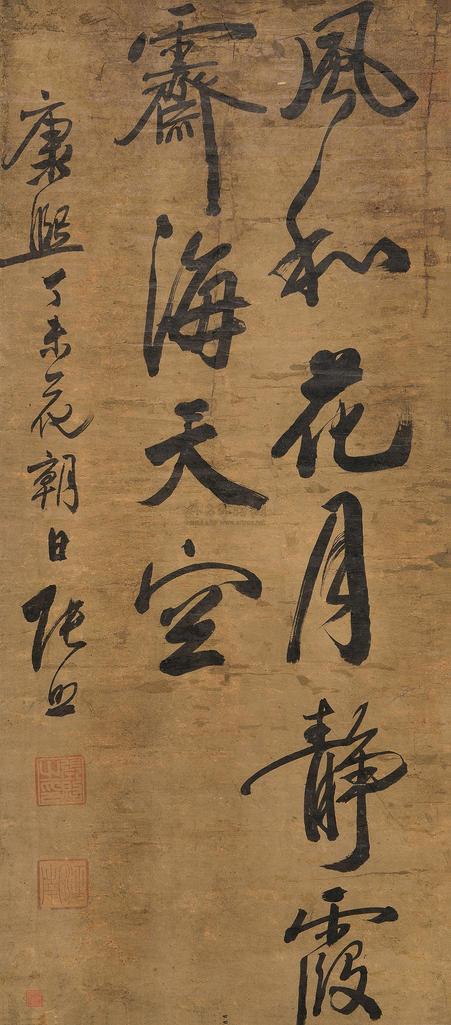 風和花月静霞
霽海天空
康熙丁未花朝日張照